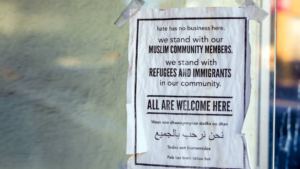 hate has no business here.
we stand with our
MUSLIM COMMUNITY MEMBERS.
we stand with
REFUGEES AND IMMIGRANTS
in our community.
ALL ARE WELCOME HERE.
نحن نرحب بالجميع
Todos son bienvenidos